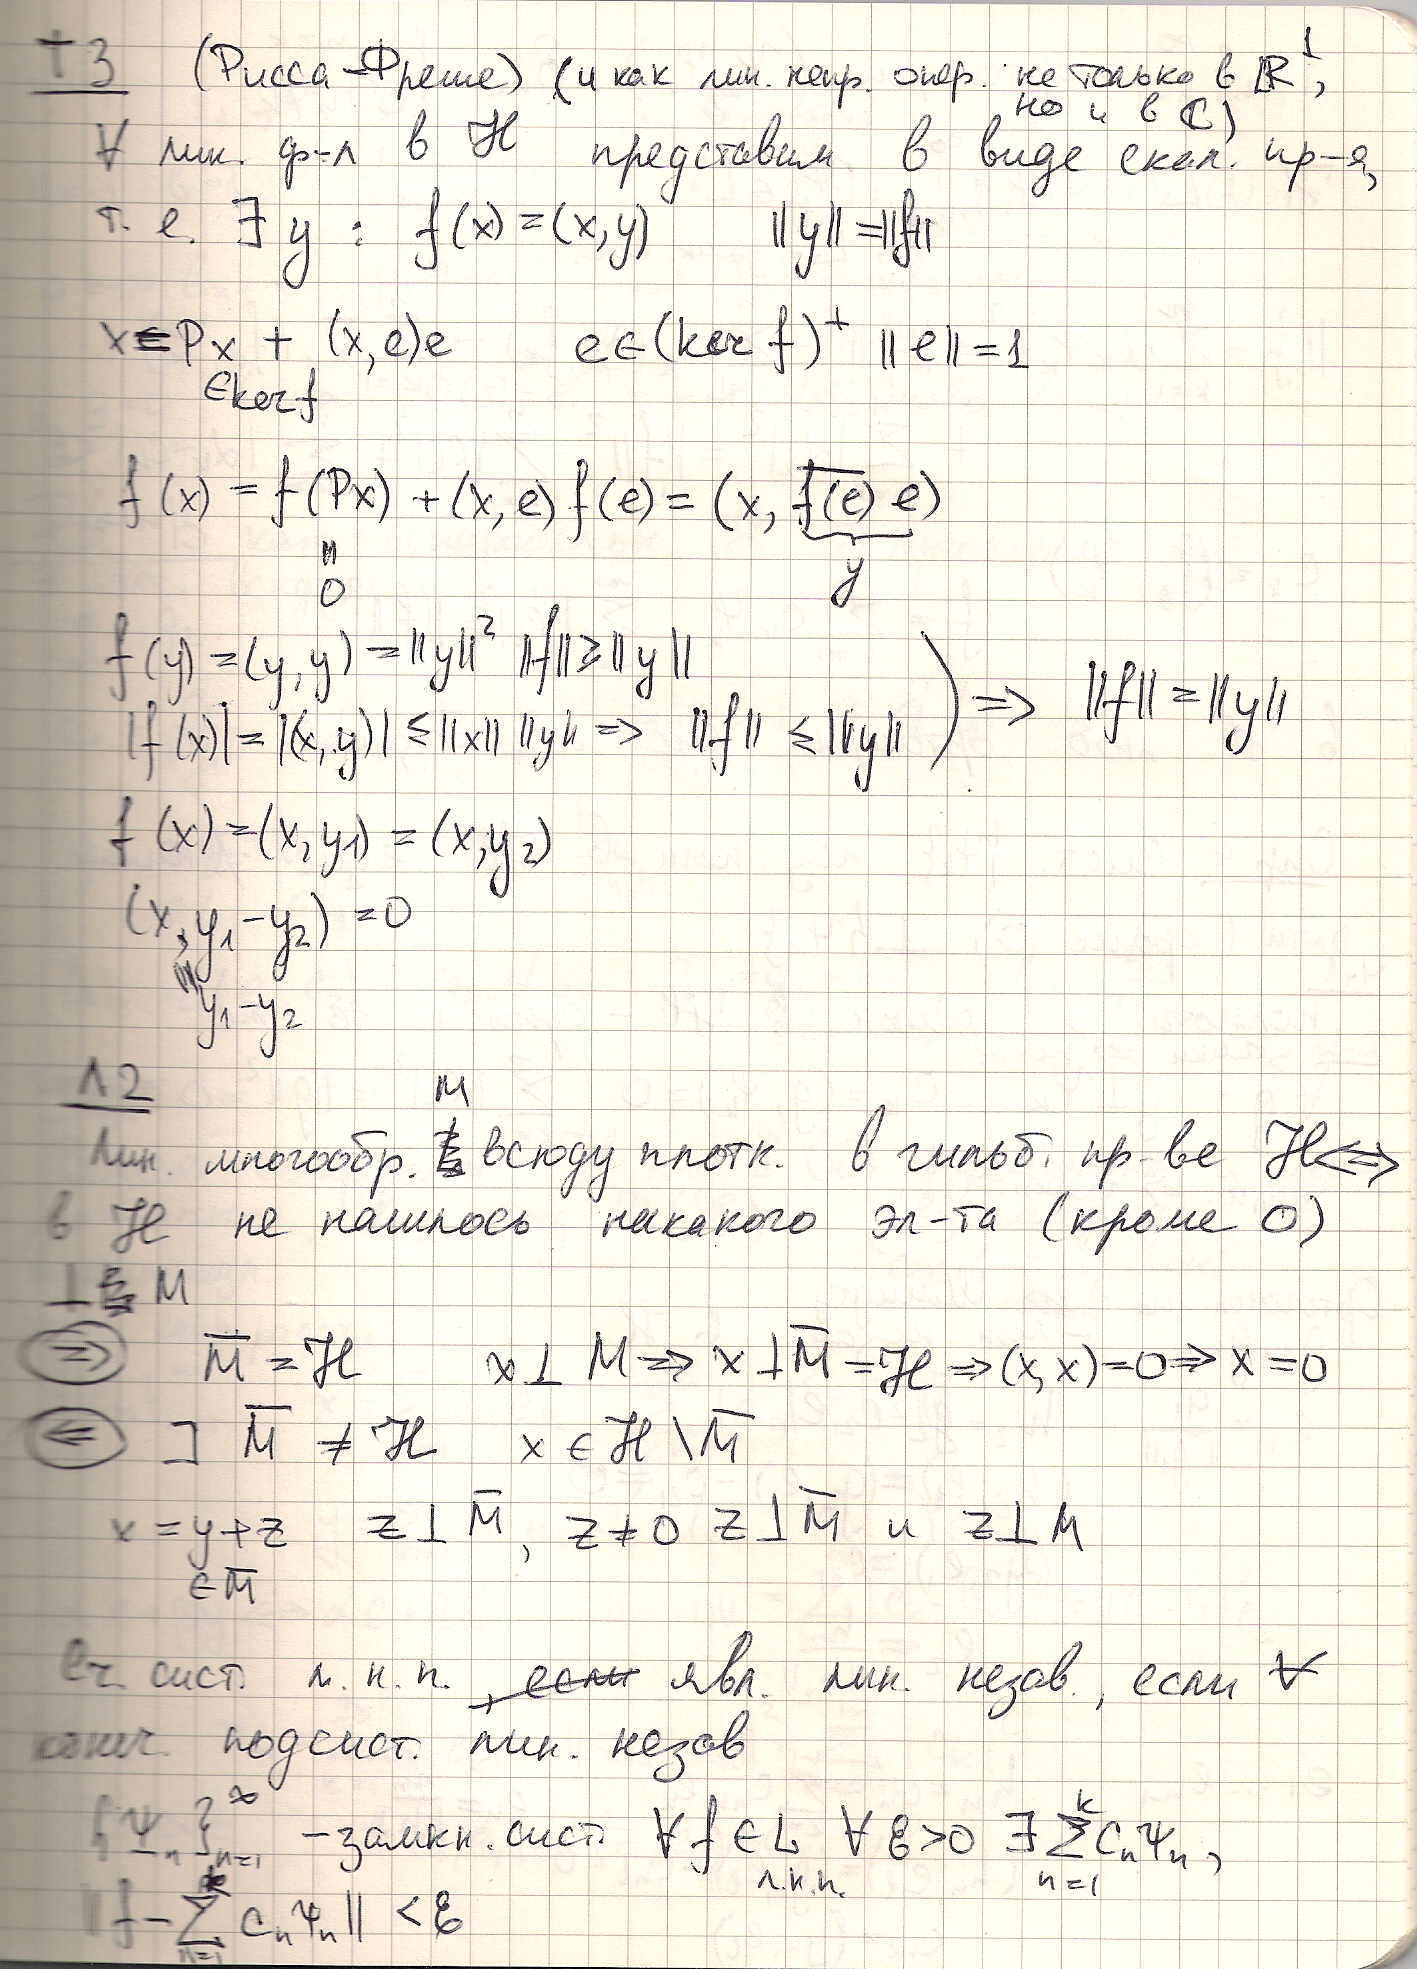 Т 3 (Рисса-Фреше) (и как лин. непр. опер. не только в ℝ¹,
но и в ℂ)
∀ лин. ф-л в ℋ представим в виде скал. пр-я,
т. е. ∃ y : f(x) = (x,y) ||y|| = ||f||
x = Px + (x,e)e e ∈ (ker f)⁺ ||e|| = 1
∈ ker f
f(x) = f(Px) + (x,e) f(e) = (x, \overline{f(e)} e)
"
0 y
f(y) = (y,y) = ||y||² ||f|| ≥ ||y||
|f(x)| = |(x,y)| ≤ ||x|| ||y|| => ||f|| ≤ ||y|| ) => ||f|| = ||y||
f(x) = (x,y₁) = (x,y₂)
(x, y₁ - y₂) = 0
"
y₁ - y₂
Л 2
M
Лин. многообр. всюду плотн. в гильб. пр-ве ℋ <=>
в ℋ не нашлось никакого эл-та (кроме 0)
⊥ M
=> M̄ = ℋ x ⊥ M => x ⊥ M̄ = ℋ => (x,x) = 0 => x = 0
<= ] M̄ ≠ ℋ x ∈ ℋ \ M̄
x = y + z z ⊥ M̄, z ≠ 0 z ⊥ M̄ и z ⊥ M
∈ M̄
Сч. сист. л. н. п. , если явл. лин. незав., если ∀
конеч. подсист. лин. незав
{Ψₙ}ₙ₌₁^∞ - замкн. сист. ∀ f ∈ L ∀ ε > 0 ∃ ∑ₙ₌₁ᵏ CₙΨₙ,
л.н.п.
||f - ∑ₙ₌₁ CₙΨₙ|| < ε